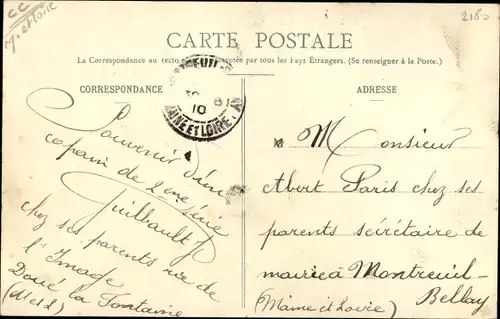 CC
M-et-Loire
2180
CARTE POSTALE
La Correspondance au recto acceptée par tous les Pays Étrangers. (Se renseigner à la Poste.)
CORRESPONDANCE
ADRESSE
10
MAINE ET LOIRE
Souvenir d'un
copain de 2eme série
Guilbault
chez ses parents rue de
l'Image
Doué la Fontaine
(M et L)
Monsieur
Abert Paris chez ses
parents sécrétaire de
mairie à Montreuil-
Bellay
(Maine et Loire)